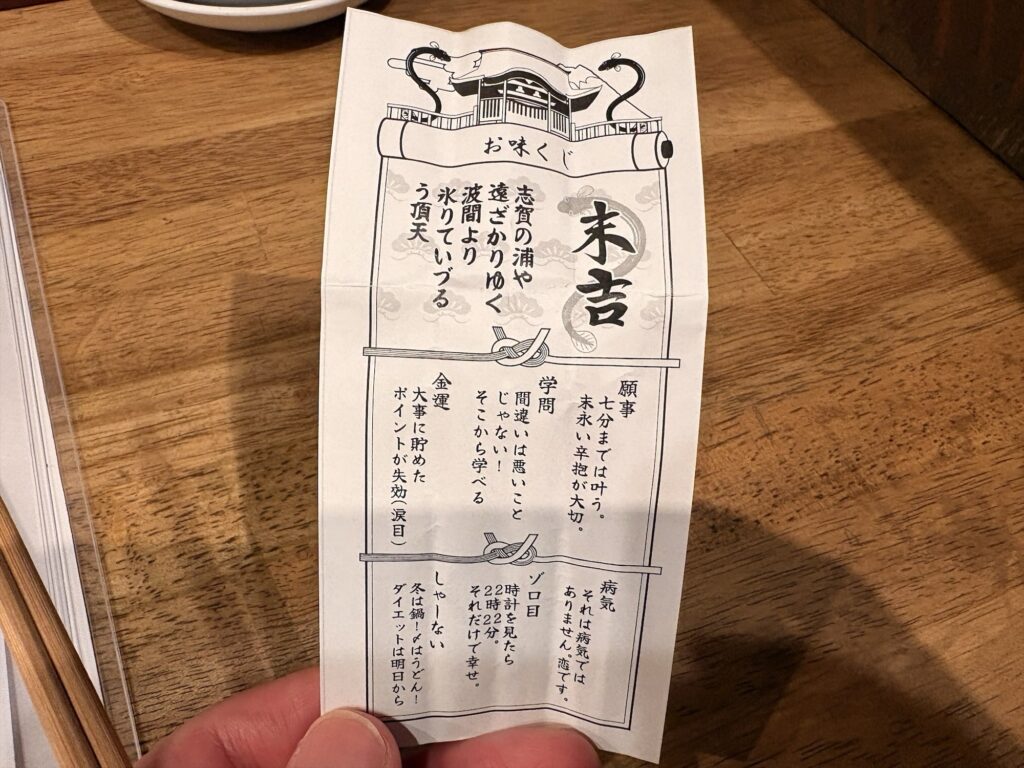 お味くじ
末吉
志賀の浦や
遠ざかりゆく
波間より
氷りていづる
う頂天
願事
七分までは叶う。
末永い辛抱が大切。
学問
間違いは悪いこと
じゃない!
そこから学べる
金運
大事に貯めた
ポイントが失効(涙目)
病気
それは病気では
ありません。恋です。
ゾロ目
時計を見たら
22時22分。
それだけで幸せ。
しゃーない
冬は鍋!〆はうどん!
ダイエットは明日から